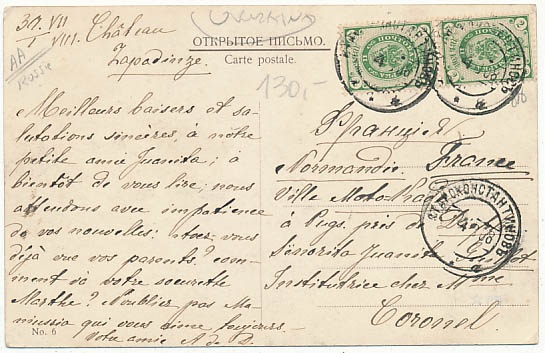 30. VII
1 VIII. Château
Zapadinze.
UKRAINA
AA
Rossie
ОТКРЫТОЕ ПИСЬМО.
Carte postale.
130,-
Meilleurs baisers et sa-
lutations sincères, à nôtre
petite amie Juanita; à
bientôt de vous lire; nous
attendons avec impatience
de vos nouvelles: avez-vous
déjà vue vos parents? com-
ment va votre sœurette
Marthe? N'oublier pas Ma-
qui vous aime toujours.-
Votre amie A de D.
No. 6
Франція
Normandie France
Ville
à près de
Senorita Juanita
Institutrice chez Mme
Coronel.
СТАРОКОНСТАНТИНОВЪ